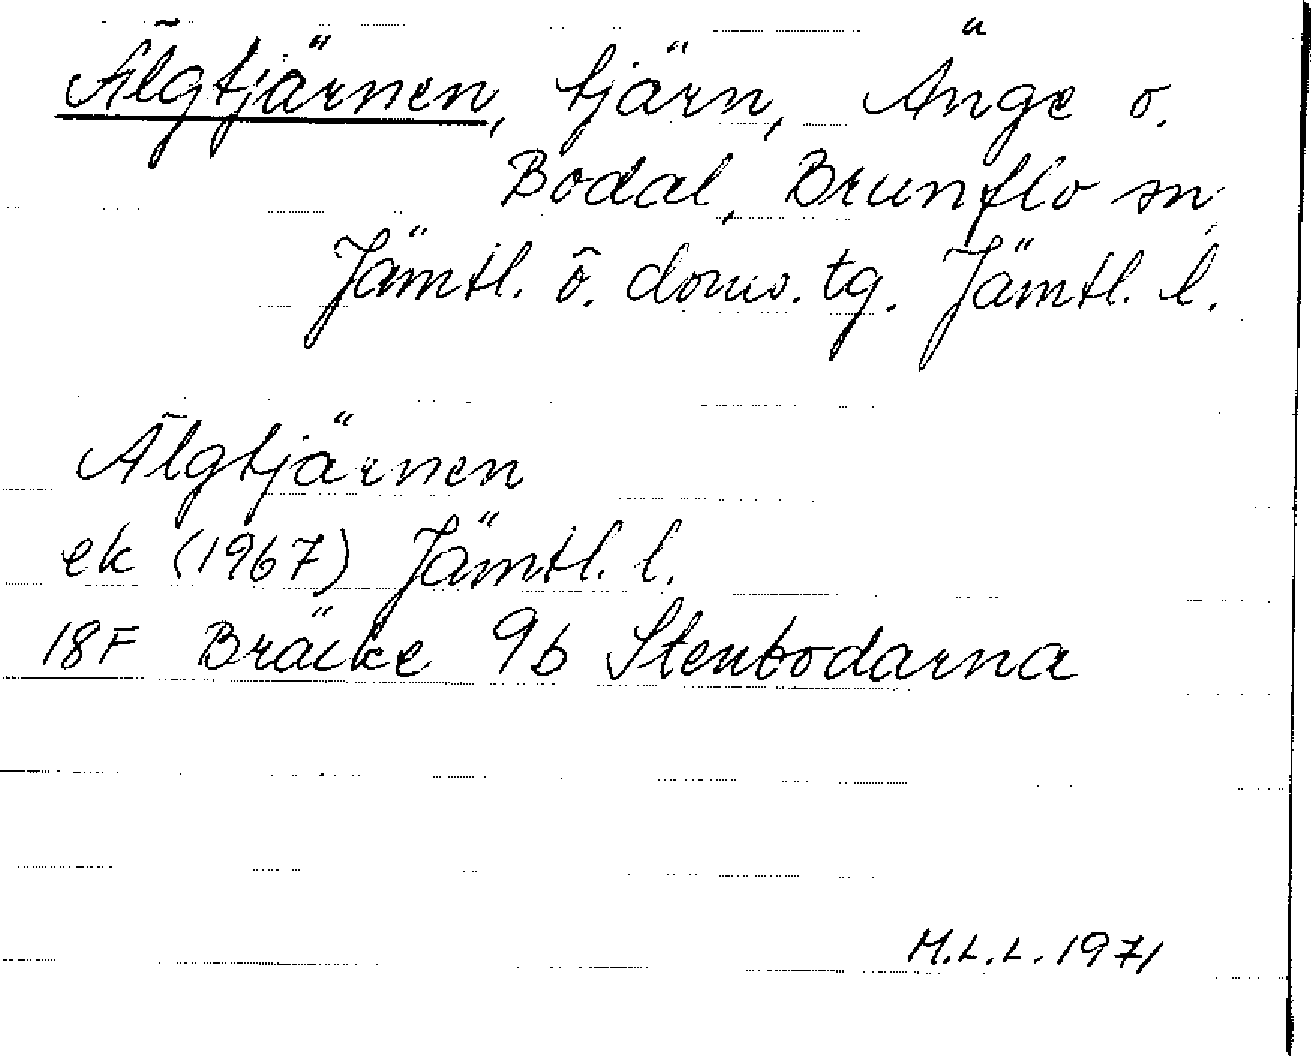 Älgtjärnen, tjärn, Änge o.
Bodal, Brunflo sn
Jämtl. ö. doms. tg. Jämtl. l.
Älgtjärnen
ek (1967) Jämtl. l.
18F Bräcke 9b Stenbodarna
M.L.L. 1971